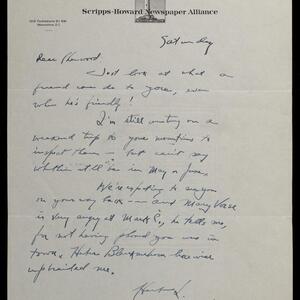 Scripps-Howard Newspaper Alliance
Washington, D.C.
Saturday
Dear Sherwood
Just look at what a
friend can do to you, even
when he's friendly!
I'm still counting on a
weekend trip to your mountains to
inspect them — but can't say
whether it'll be in May or June.
We're expecting to see you
on your way back — and Mary Vorse
is very angry at Mark E., he tells me,
for not having phoned you was in
town. Blankenhorn likewise
upbraided me.